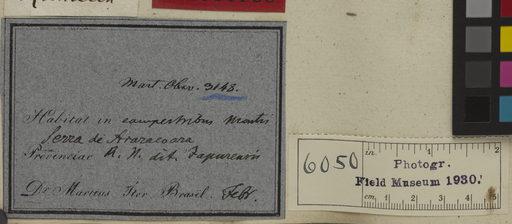 Mart. Obs. 3148.
Habitat in campestribus montis
Serra de Araracoara
Provinciae R. N. dit. Japurensis
Dr. Martius Iter Brasil. Febr.
6050
in.
Photogr.
Field Museum 1930.
cm. 1 2 3 4 5